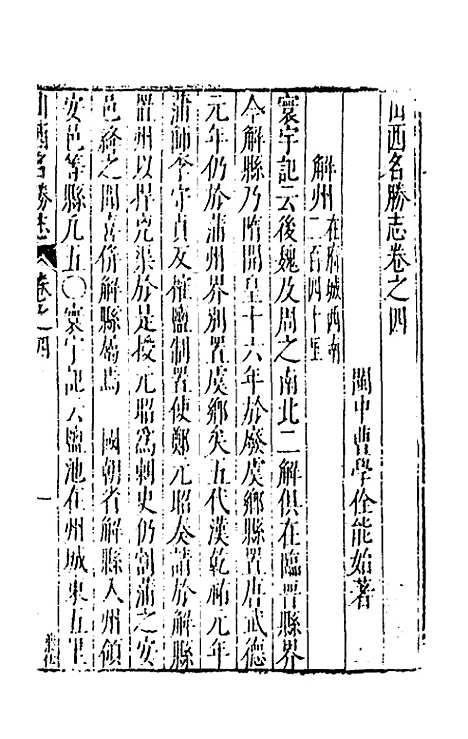 山西名勝志卷之四
閩中曹學佺能始著
解州在府城西南二百四十里
寰宇記云後魏及周之南北二解俱在臨晉縣界
今解縣乃隋開皇十六年於廢虞鄉縣置唐武德
元年仍於蒲州界別置虞鄉矣五代漢乾祐元年
蒲帥李守貞反權鹽制置使鄭元昭奏請於解縣
置州以捍兇渠於是授元昭為刺史仍割蒲之安
邑絳之聞喜倂解縣屬焉 國朝省解縣入州領
安邑等縣凡五〇寰宇記云鹽池在州城東五里
山西名勝志 卷之四 一